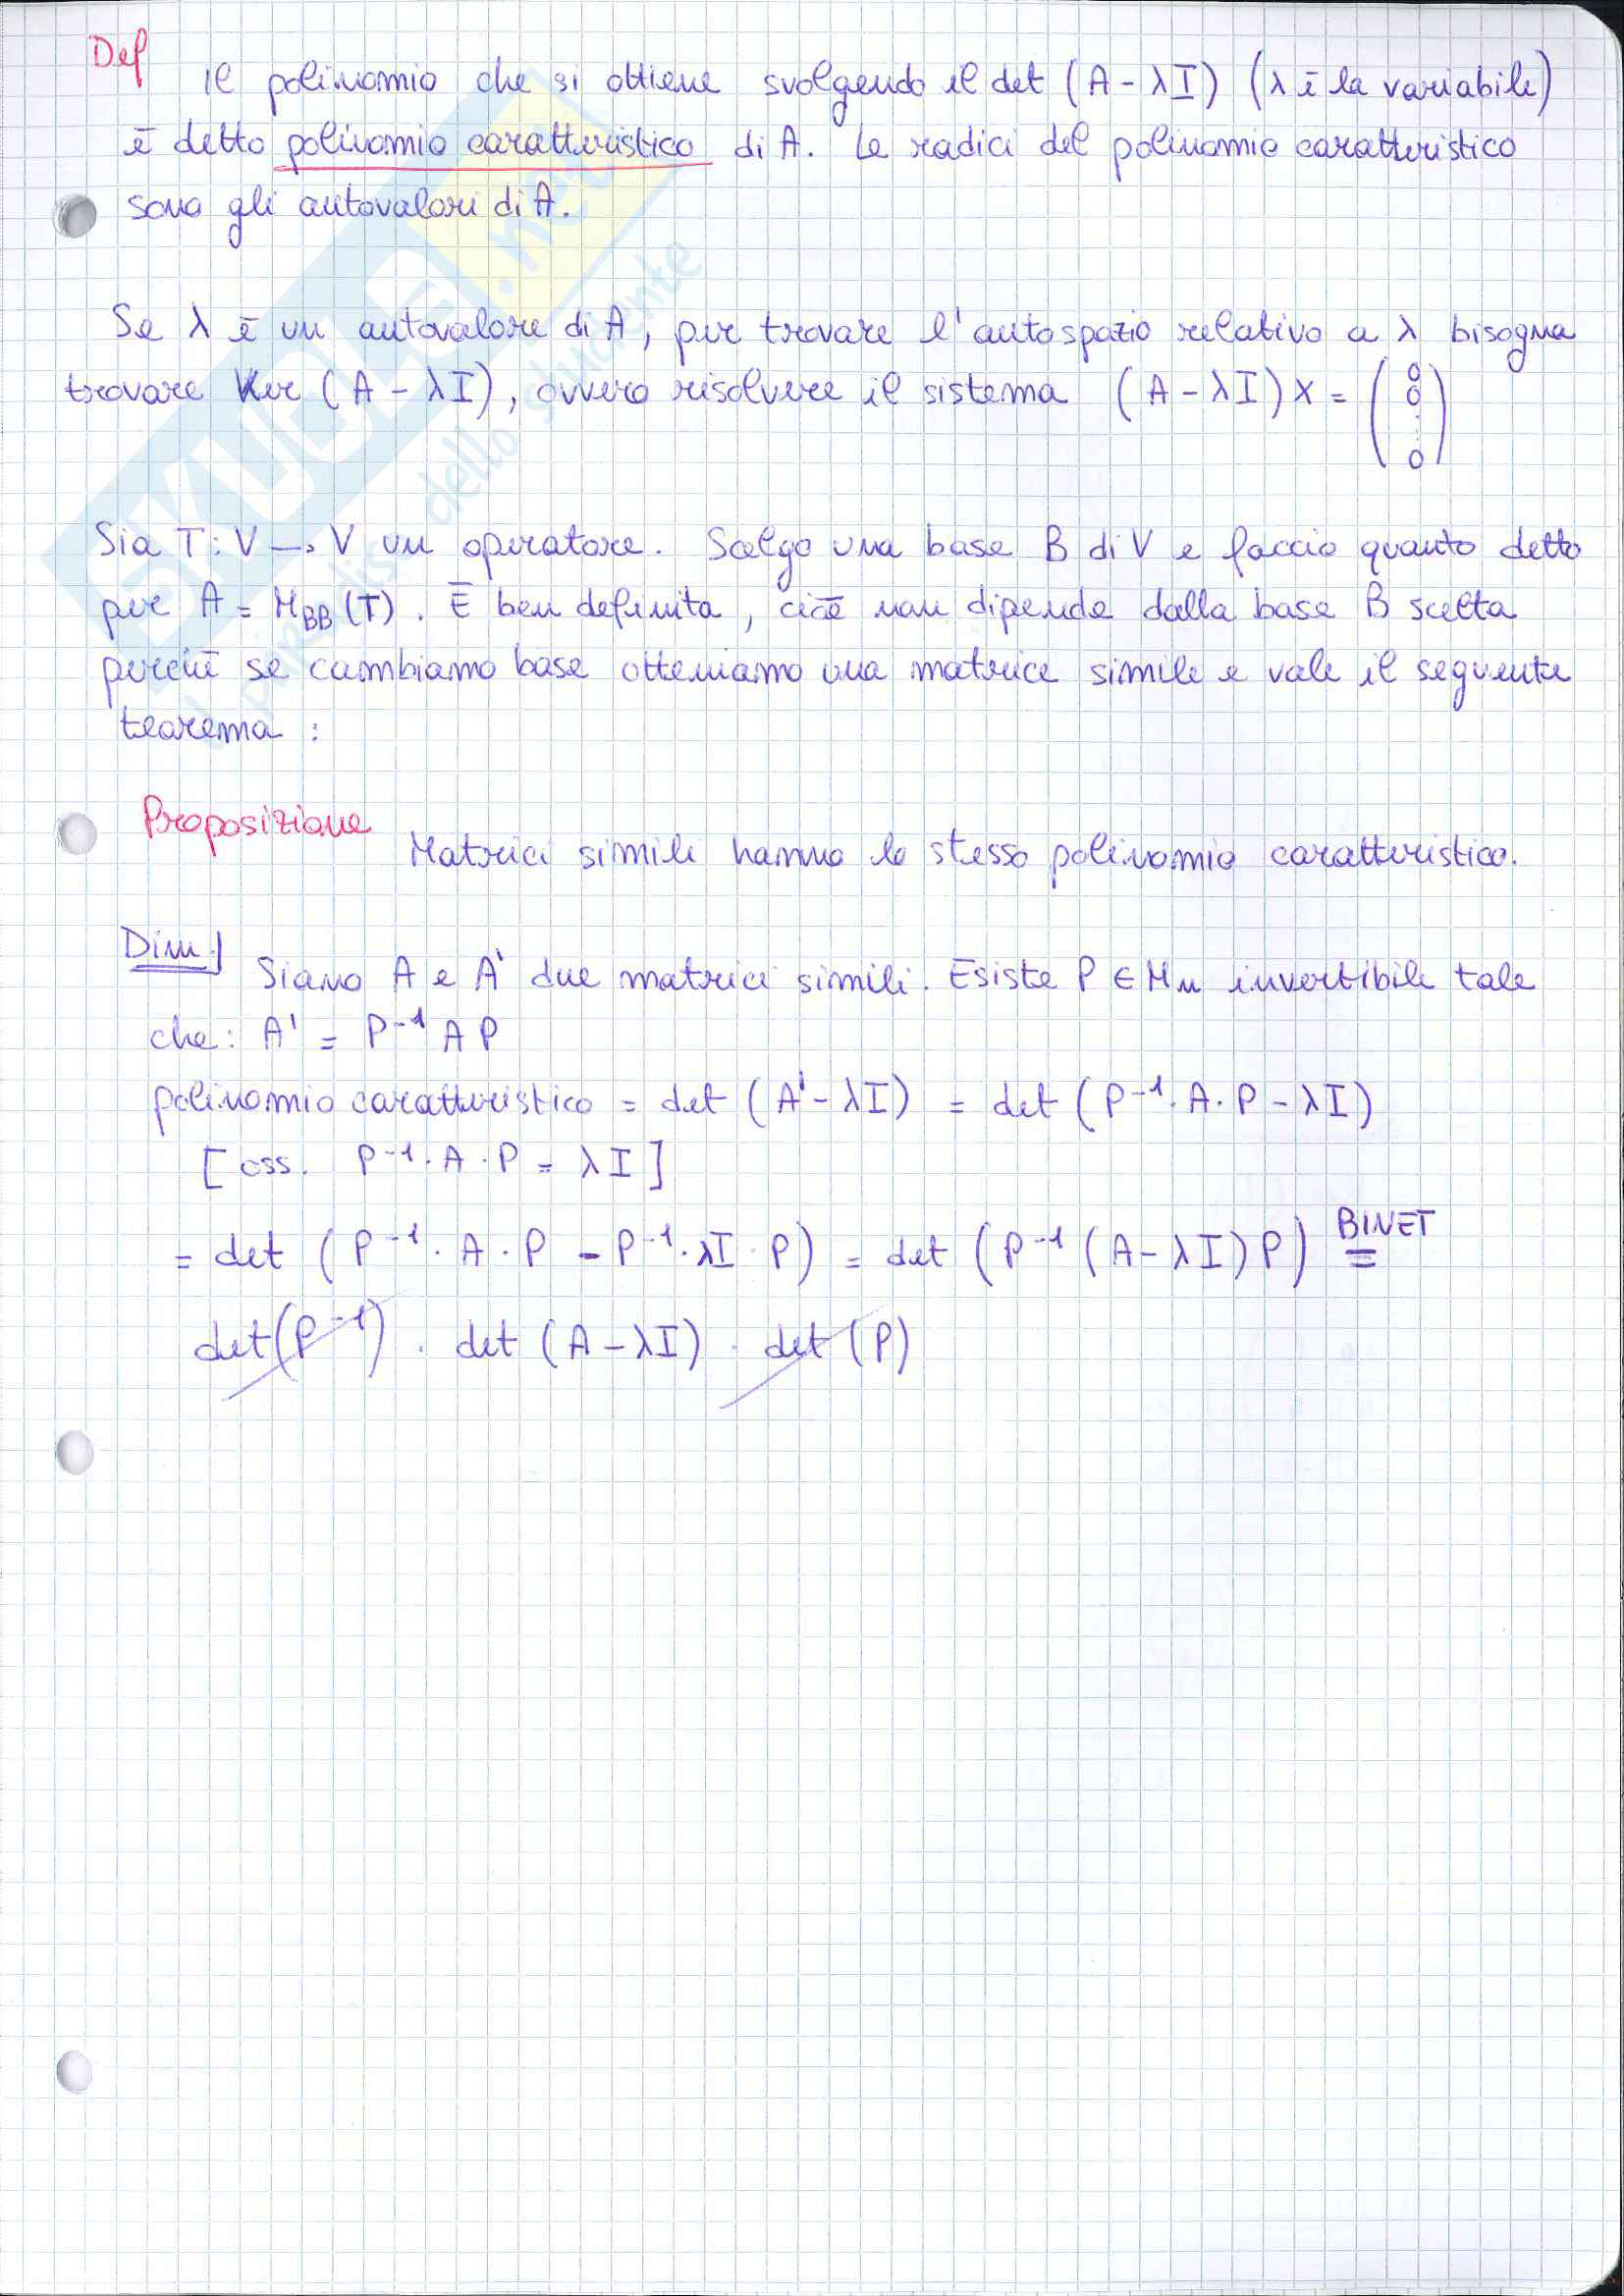 Def
Il polinomio che si ottiene svolgendo il det (A - λI) (λ è la variabile)
è detto polinomio caratteristico di A. Le radici del polinomio caratteristico
sono gli autovalori di A.
Se λ è un autovalore di A, per trovare l'autospazio relativo a λ bisogna
trovare Ker (A - λI), ovvero risolvere il sistema (A - λI) X = (0 0 ⋮ 0)
Sia T: V → V un operatore. Scelgo una base B di V e faccio quanto detto
per A = M_BB (T). È ben definita, cioè non dipende dalla base B scelta
perché se cambiamo base otteniamo una matrice simile e vale il seguente
teorema :
Proposizione
Matrici simili hanno lo stesso polinomio caratteristico.
Dim.
Siano A e A' due matrici simili. Esiste P ∈ Mn invertibile tale
che: A' = P⁻¹ A P
polinomio caratteristico = det (A' - λI) = det (P⁻¹ · A · P - λI)
[oss. P⁻¹ · A · P = λI]
= det (P⁻¹ · A · P - P⁻¹ · λI · P) = det (P⁻¹ (A - λI) P) BINET =
det (P⁻¹) · det (A - λI) · det (P)
SKUOLA.net